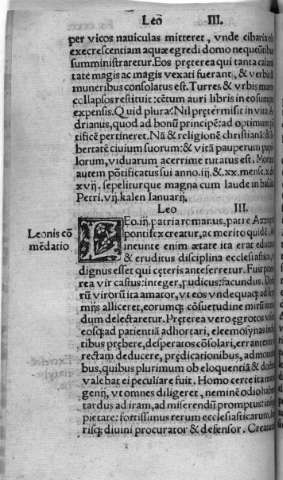 Leo III.
per vicos nauiculas mitteret, vnde cibaria ob
excrescentiam aquæ egredi domo nequeūtibus
sumministraretur. Eos præterea qui tanta calami
tate magis ac magis vexati fuerant, & verbis &
muneribus consolatus est. Turres & vrbis muros
collapsos restituit: cētum auri libris in eo sumptu
expensis. Quid plura: Nil prętermisit in vita A
drianus, quod ad bonū principē: ad optimū
tificē pertineret. Nā & religionē christianā: & li
bertatē ciuium suorum: & vitā pauperum pupil
lorum, viduarum acerrime tutatus est. Moritur
autem pōtificatus sui anno .iij. & .xx. mense. x. d.
xvij. sepeliturque magna cum laude in basilica
Petri .vij. kalen Ianuarij.
Leo III.
Leonis cō
mēdatio
LEo .iij. patria romanus, patre Azzup
pontifex creatur, ac merito quidē. A
ineunte enim ætate ita erat educatus
& eruditus disciplina ecclesiastica,
dignus esset qui cęteris anteferretur. Fuit
rea vir castus: integer, pudicus: facundus. Docto
rū virorū ita amator, vt eos vndequaque ad
mijs alliceret, eorumque cōsuetudine mirū
dum delectaretur. Præterea vero egrotos vise
eosque ad patientiā adhortari, eleemosynas indi
tibus prębere, desperatos cōsolari, errantes
rectam deducere, prędicationibus, ad moni
bus, quibus plurimum ob eloquentiā & do
valebat ei peculiare fuit. Homo certe ita man
genij, vt omnes diligeret, nemine odio haberet
tardus ad iram, ad miserendū promptus:
pietate: fortissimus rerum ecclesiasticarum,
risque diuini procurator & defensor. Creatus